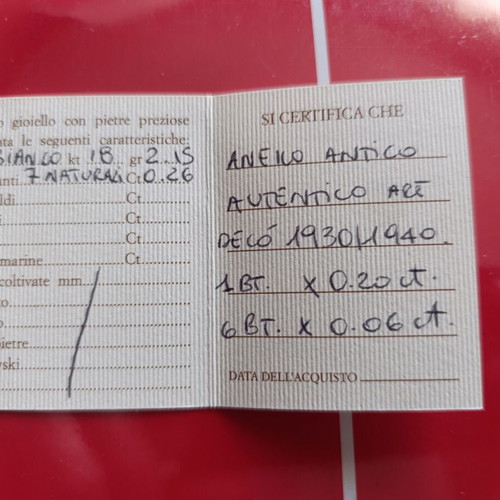 o gioiello con pietre preziose
ata le seguenti caratteristiche:
BIANCO kt 18 gr 2.15
nti 7 NATURALI Ct 0.26
ldi Ct
i Ct
Ct
marine Ct
coltivate mm.
to
o
pietre
vski
SI CERTIFICA CHE
ANELLO ANTICO
AUTENTICO ART
DECÓ 1930/1940.
1 BT. X 0.20 ct.
6 BT. X 0.06 ct.
DATA DELL'ACQUISTO